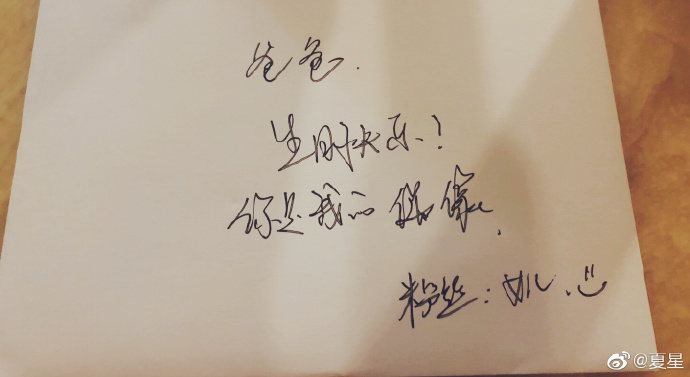 爸爸.
生日快乐!
你是我的偶像.
粉丝: 女儿. :)
@夏星